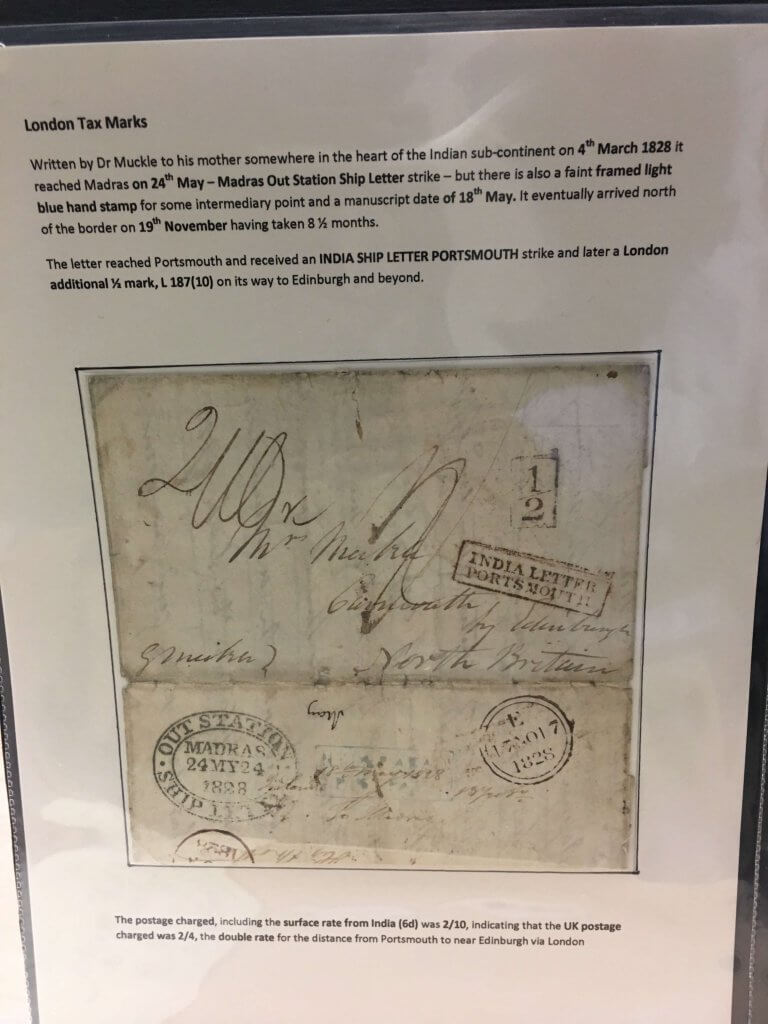 London Tax Marks
Written by Dr Muckle to his mother somewhere in the heart of the Indian sub-continent on 4th March 1828 it
reached Madras on 24th May – Madras Out Station Ship Letter strike – but there is also a faint framed light
blue hand stamp for some intermediary point and a manuscript date of 18th May. It eventually arrived north
of the border on 19th November having taken 8 ½ months.
The letter reached Portsmouth and received an INDIA SHIP LETTER PORTSMOUTH strike and later a London
additional ½ mark, L 187(10) on its way to Edinburgh and beyond.
1
2
INDIA LETTER
PORTSMOUTH
Mrs
by Edinburgh
North Britain
May
OUT STATION
MADRAS
24 MY 24
1828
SHIP
E
17 NO 17
1828
The postage charged, including the surface rate from India (6d) was 2/10, indicating that the UK postage
charged was 2/4, the double rate for the distance from Portsmouth to near Edinburgh via London